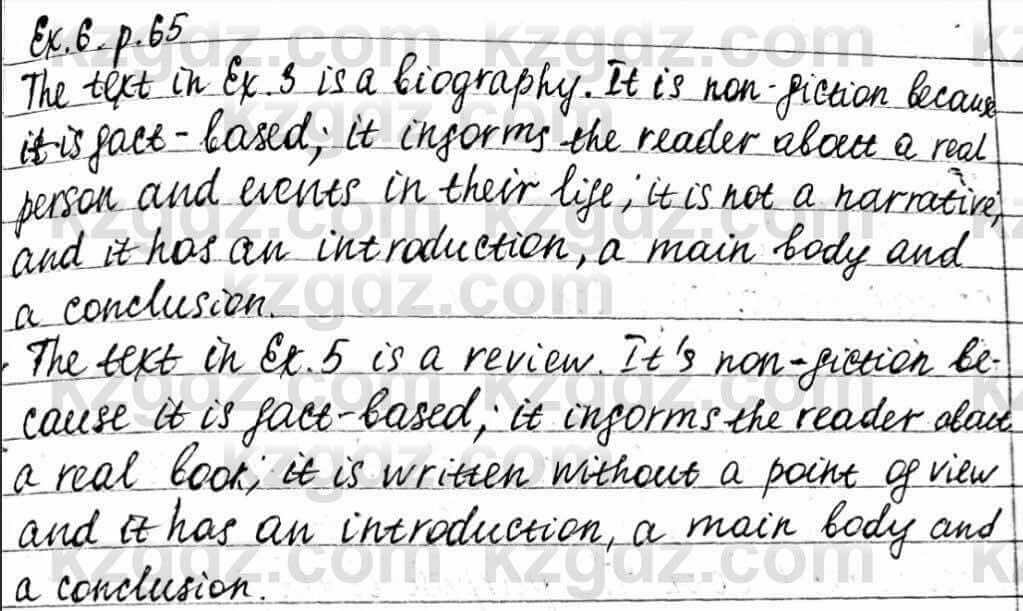 Ex. 6. p. 65
The text in Ex. 3 is a biography. It is non-fiction because
it is fact-based; it informs the reader about a real
person and events in their life; it is not a narrative,
and it has an introduction, a main body and
a conclusion.
The text in Ex. 5 is a review. It's non-fiction be-
cause it is fact-based; it informs the reader about
a real book; it is written without a point of view
and it has an introduction, a main body and
a conclusion.